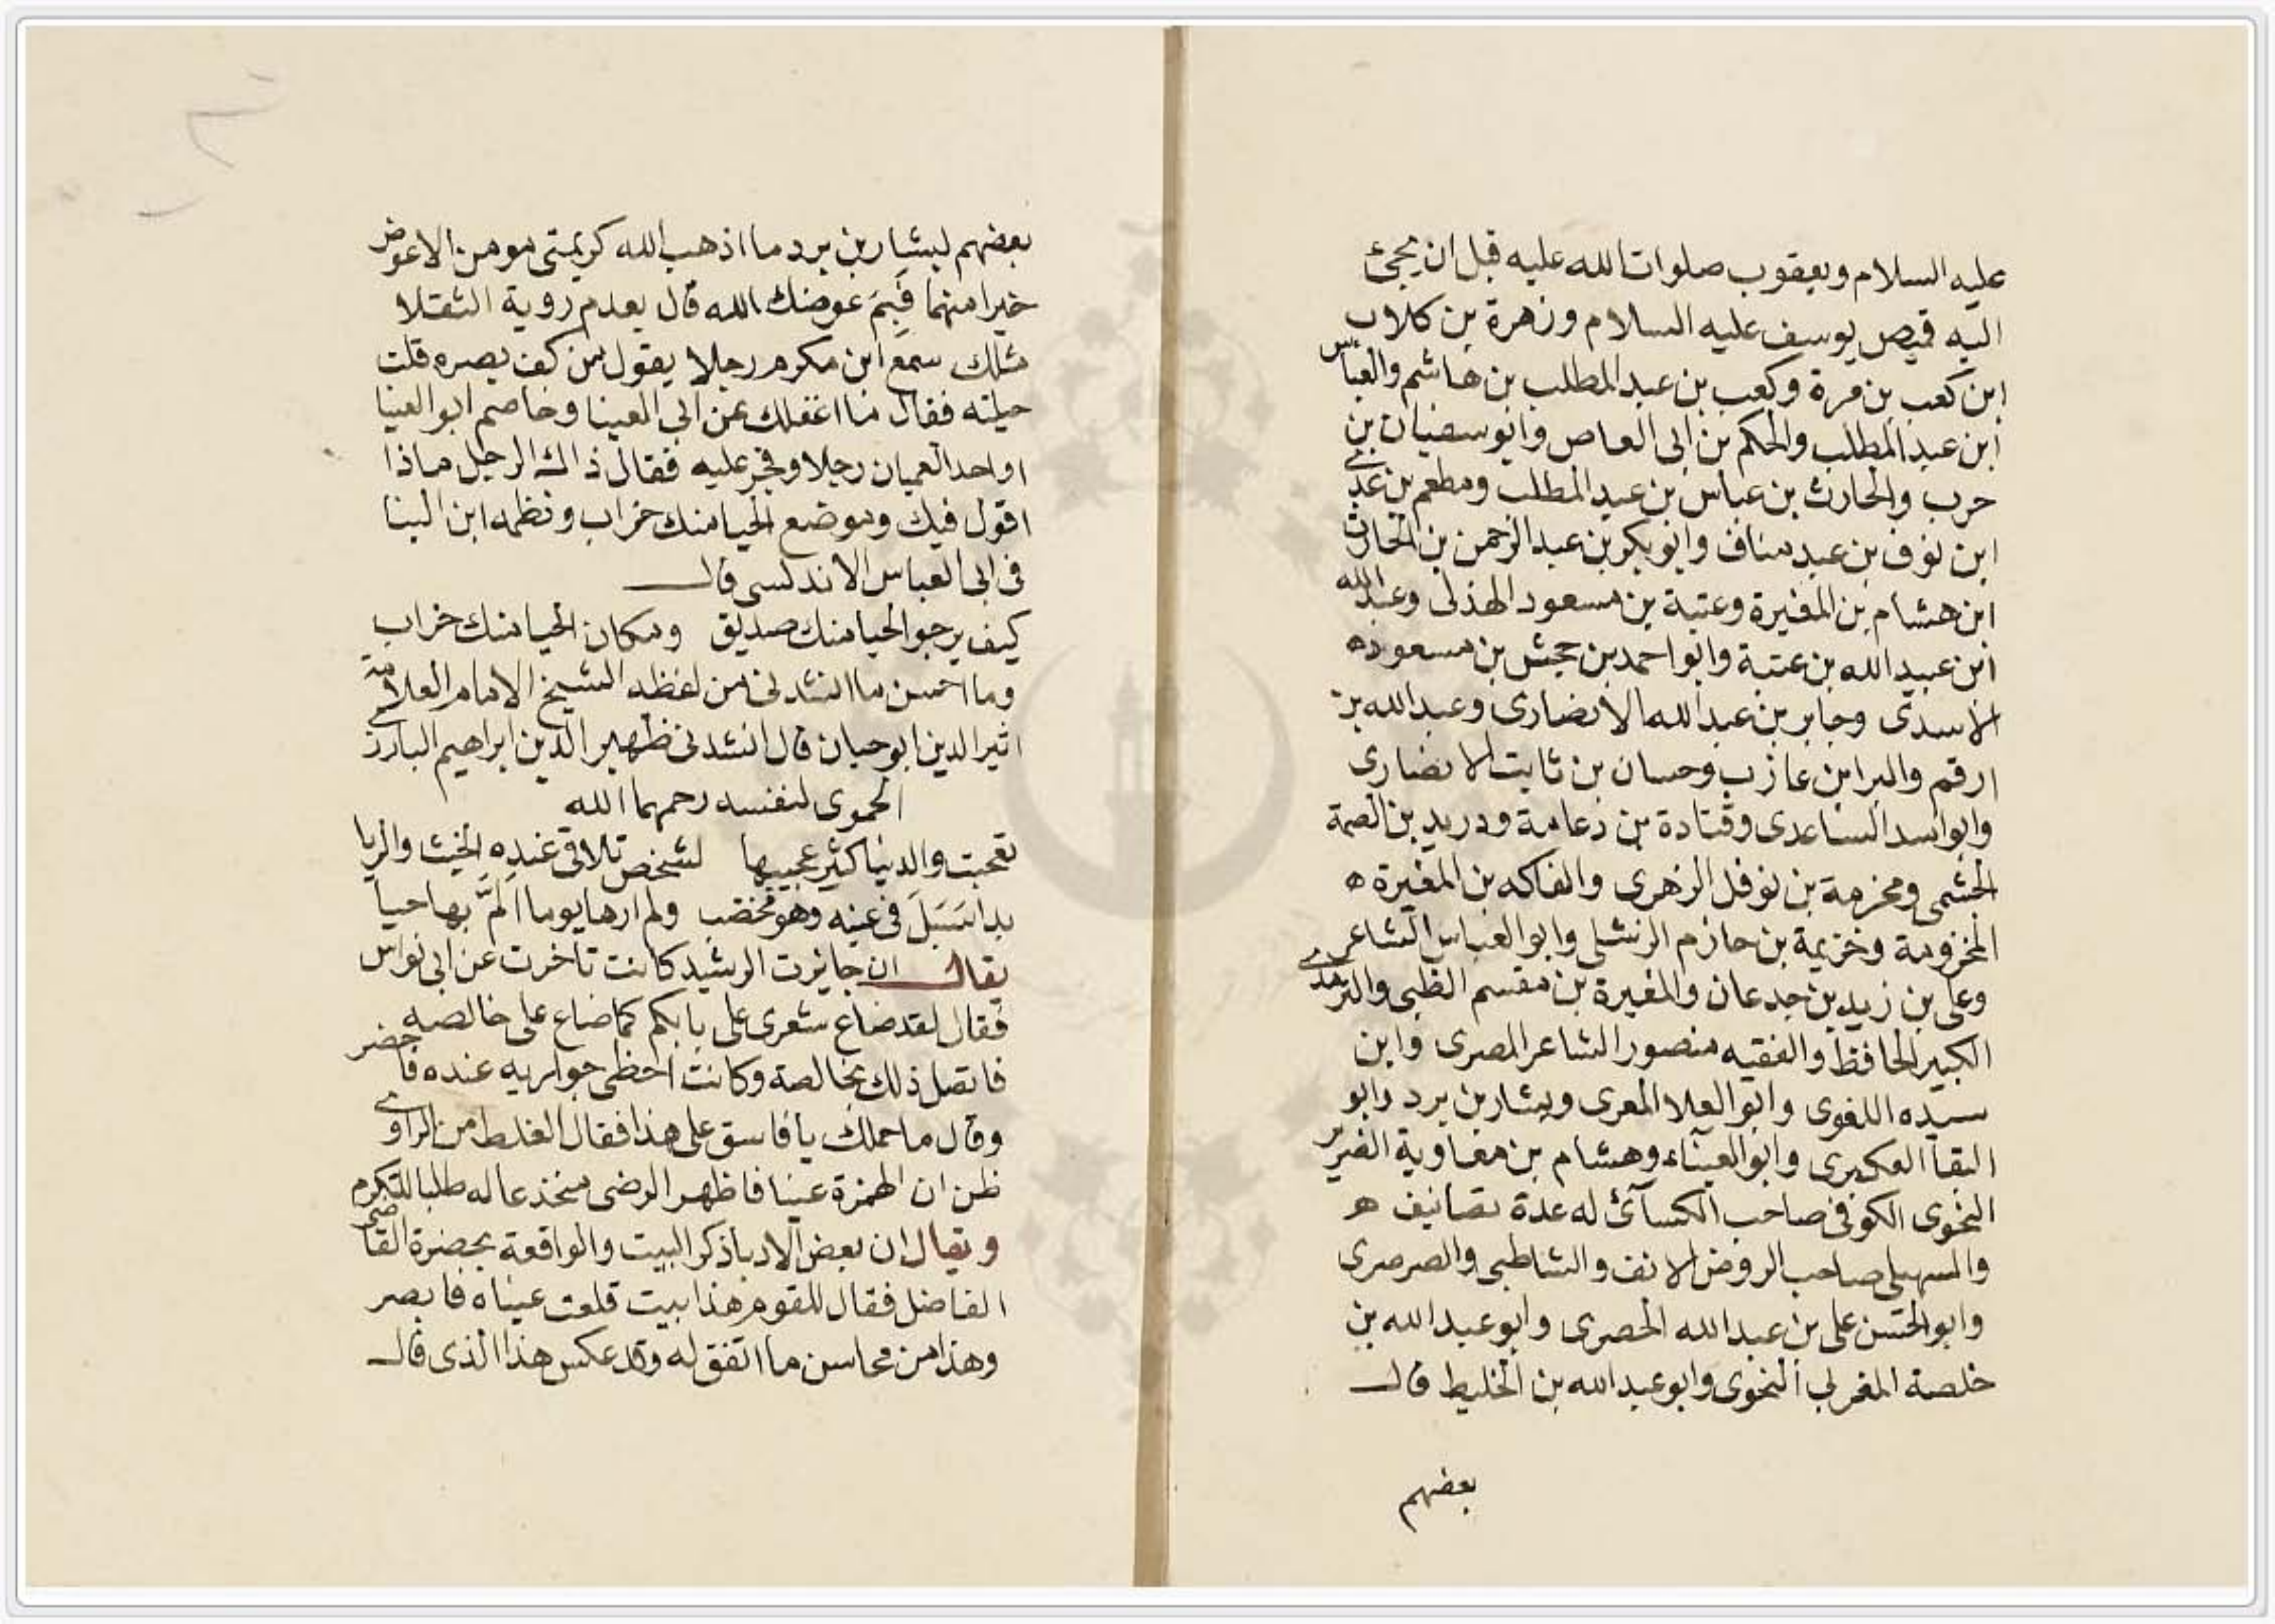 عليه السلام ويعقوب صلوات الله عليه قبل ان يجئ
اليه قميص يوسف عليه السلام وزهرة بن كلاب
ابن كعب بن مرة وكعب بن عبد المطلب بن هاشم والعباس
ابن عبد المطلب والحكم بن ابى العاص وابو سفيان بن
حرب والحارث بن عباس بن عبد المطلب ومطعم بن عدى
ابن نوف بن عبد مناف وابو بكر بن عبد الرحمن بن الحارث
ابن هشام بن المغيرة وعتبة بن مسعود الهذلى وعبد الله
ابن عبيد الله بن عتبة وابو احمد بن جحش بن مسعود ه
الاسدى وجابر بن عبد الله الانصارى وعبد الله بن
ارقم والبرا بن عازب وحسان بن ثابت الانصارى
وابو اسد الساعدى وقتادة بن دعامة ودريد بن الصمة
الجشمى ومخرمة بن نوفل الزهرى والفاكه بن المغيرة ه
المخزومة وخزيمة بن حازم الرنشلى وابو العباس الشاعر
وعلى بن زيد بن جدعان والمغيرة بن مقسم الظبى والترمدى
الكبير الحافظ والفقيه منصور الشاعر المصرى وابن
سيده اللغوى وابو العلا المعرى وبشار بن برد وابو
البقا العكبرى وابو العيناء وهشام بن معاوية الضرير
النحوى الكوفى صاحب الكسآئ له عدة تصانيف ه
والسهيلى صاحب الروض الانف والشاطبى والصرصرى
وابو الحسن على بن عبد الله الحصرى وابو عبد الله بن
خلصة المغربى النحوى وابو عبد الله بن الخليط قال
بعضهم
بعضهم لبشار بن برد ما اذهب الله كريمتى مومن الا عوض
خيرا منهما فَبِمَ عوضك الله قال بعدم روية الثقلا
مثلك سمع ابن مكرم رجلا يقول من كف بصره قلت
حيلته فقال ما اغفلك عن ابى العينا وخاصم ابو العينا
او احد العميان رجلا وفجر عليه فقال ذاك الرجل ماذا
اقول فيك وموضع الحيا منك خراب ونظمه ابن البنا
فى ابى العباس الاندلسى قال
كيف يرجو الحيا منك صديق ومكان الحيا منك خراب
وما احسن ما انشدنى من لفظه الشيخ الامام العلامة
اثير الدين ابو حيان قال انشدنى ظهير الدين ابراهيم البارزى
الحموى لنفسه رحمهما الله
تعجبت والدنيا كثير عجيبها لشخص تلاقى عنده الخيث والريا
بدا سَبَلَ فى عينه وهو مخضب ولم ارها يوما المَّ بها حيا
يقال ان جايزت الرشيد كانت تاخرت عن ابى نواس
فقال لقد ضاع شعرى على بابكم كما ضاع على خالصه
فاتصل ذلك بخالصة وكانت احظى جواريه عنده فاحضر
وقال ما حملك يا فاسق على هذا فقال الغلط من الراوى
ظن ان الهمزة عينا فاظهر الرضى بخدعا له طلبا للتكرم
ويقال ان بعض الادبا ذكر البيت والواقعة بحضرة القاضى
الفاضل فقال للقوم هذا بيت قلعت عيناه فابصر
وهذا من محاسن ما اتفق له وقد عكس هذا الذى قال